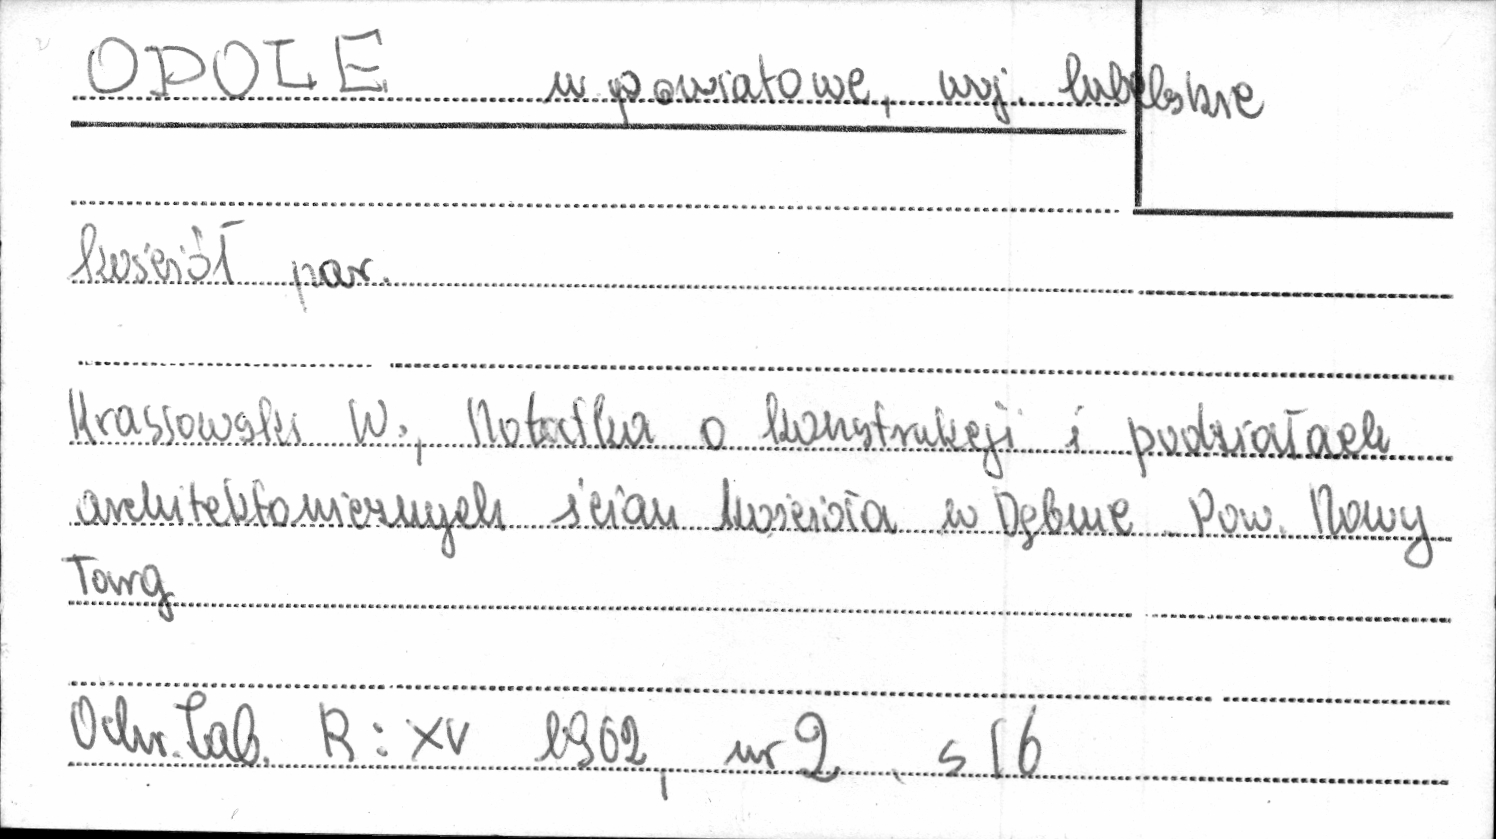 OPOLE m powiatowe, woj. lubelskie
kościół par.
Krassowski W., Notatka o konstrukcji i podziałach
architektonicznych ścian kościoła w Dębnie Pow. Nowy
Targ
Ochr. Zab. R: XV 1962, nr 2, s 16